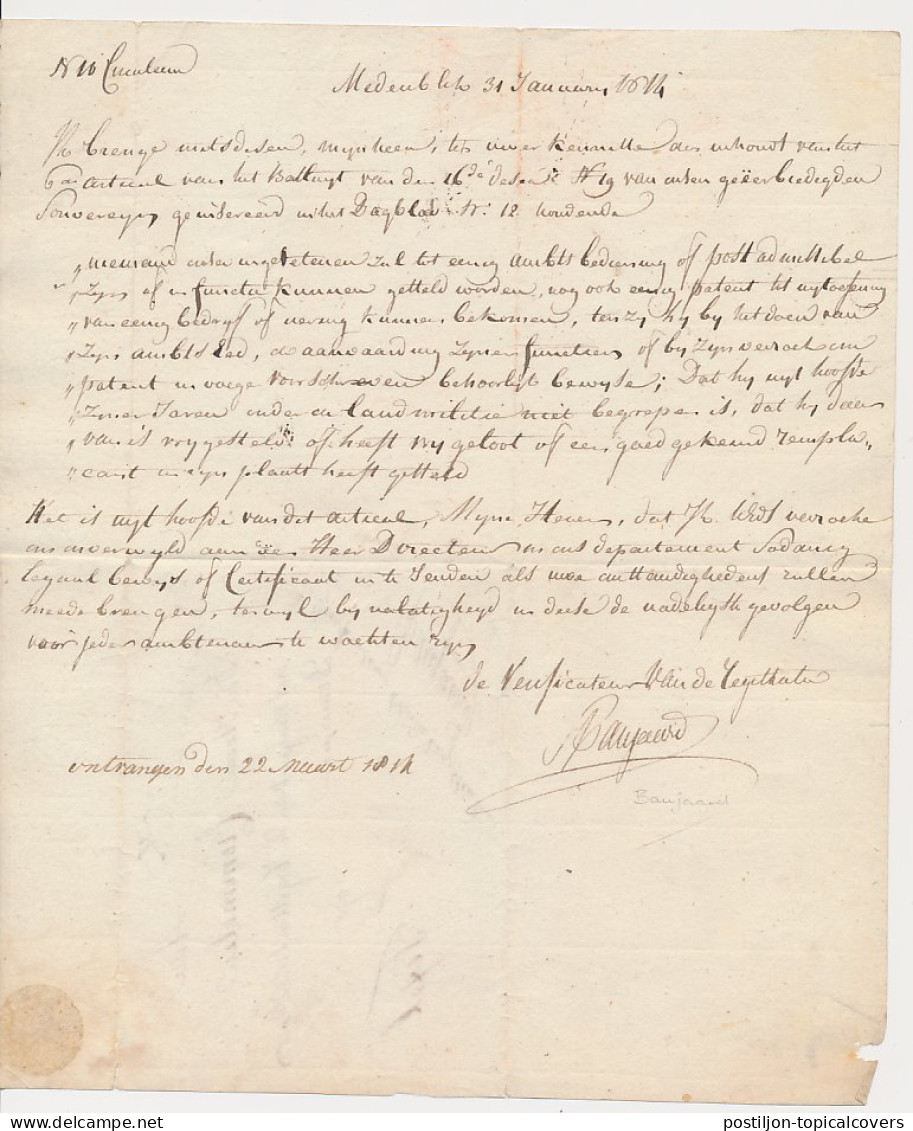 No 10 Circulaire
Medenblik 31 January 1814
Ik brenge mits desen, mynheer, ter uwer kennisse den inhoud van het
6de articul van het Besluyt van den 16de deser No 19 van onsen geëerbiedigden
Souvereyn geinsereerd in het Dagblad Nr. 12 houdende
"niemand onser ingezetenen zal tot eenig ambts bediening of post admissibel
"zyn of in functie kunnen gesteld worden, nog ook eenig patent tot uytoefening
"van eenig bedryf of nering kunnen bekomen, ten zy hy by het doen van
"zyn ambts Eed, de aanvaarding zyner functien of by zyn versoek om
"patent in voege voorschreven behoorlyk bewyse; Dat hy uyt hoofde
"zyner Jaren onder de landmilitie niet begrepen is, dat hy daar
"van is vry gesteld of heeft vry geloot of een goed gekeurd rempla„
"cant in zyn plaats heeft gesteld
Het is uyt hoofde van dit articul, Myn Heer, dat Ik UEds versoeke
om onverwyld aan den Heer Directeur in ons departement Sodanig
legaal bewys of Certificaat in te Senden als uwe omstandigheden zullen
mede brengen, terwyl by nalatigheyd in dese de nadeligste gevolgen
voor jeder ambtenaar te wachten zyn
de Verificateur Van de
Banjaard
ontvangen den 22 Maart 1814
Banjaard
postiljon-topicalcovers